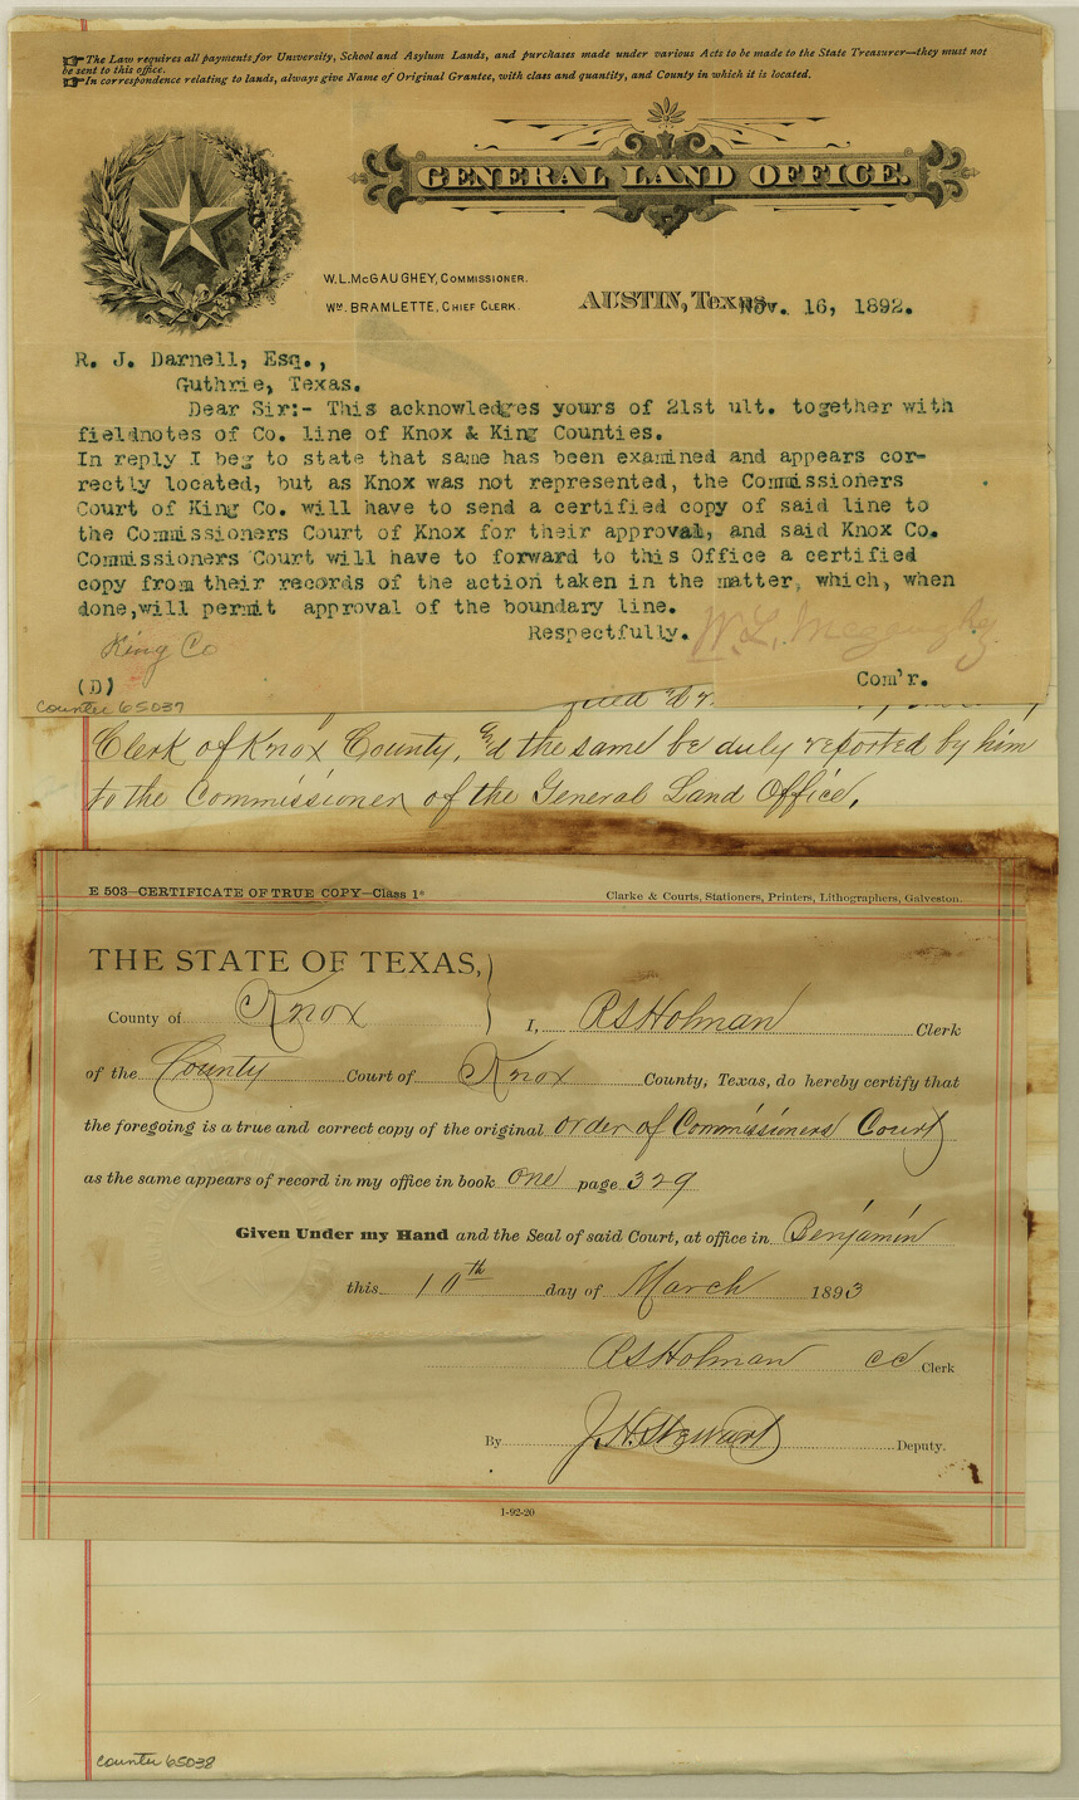 The Law requires all payments for University, School and Asylum Lands, and purchases made under various Acts to be made to the State Treasurer—they must not
be sent to this office.
In correspondence relating to lands, always give Name of Original Grantee, with class and quantity, and County in which it is located.
GENERAL LAND OFFICE.
W.L. McGAUGHEY, COMMISSIONER.
WM. BRAMLETTE, CHIEF CLERK.
AUSTIN, Texas, Nov. 16, 1892.
R. J. Darnell, Esq.,
Guthrie, Texas.
Dear Sir:- This acknowledges yours of 21st ult. together with
fieldnotes of Co. line of Knox & King Counties.
In reply I beg to state that same has been examined and appears cor-
rectly located, but as Knox was not represented, the Commissioners
Court of King Co. will have to send a certified copy of said line to
the Commissioners Court of Knox for their approval, and said Knox Co.
Commissioners Court will have to forward to this Office a certified
copy from their records of the action taken in the matter, which, when
done, will permit approval of the boundary line.
Respectfully.
W. L. McGaughey
King Co
Com'r.
(D)
counter 65037
Clerk of Knox County, & the same be duly reported by him
to the Commissioner of the General Land Office.
E 503—CERTIFICATE OF TRUE COPY—Class 1*
Clarke & Courts, Stationers, Printers, Lithographers, Galveston.
THE STATE OF TEXAS,
County of Knox
I, R S Holman Clerk
of the County Court of Knox County, Texas, do hereby certify that
the foregoing is a true and correct copy of the original order of Commissioners Court
as the same appears of record in my office in book One page 329
Given Under my Hand and the Seal of said Court, at office in Benjamin
this 10th day of March 1893
R S Holman CC Clerk
By J. H. Stewart Deputy.
1-92-20
counter 65038